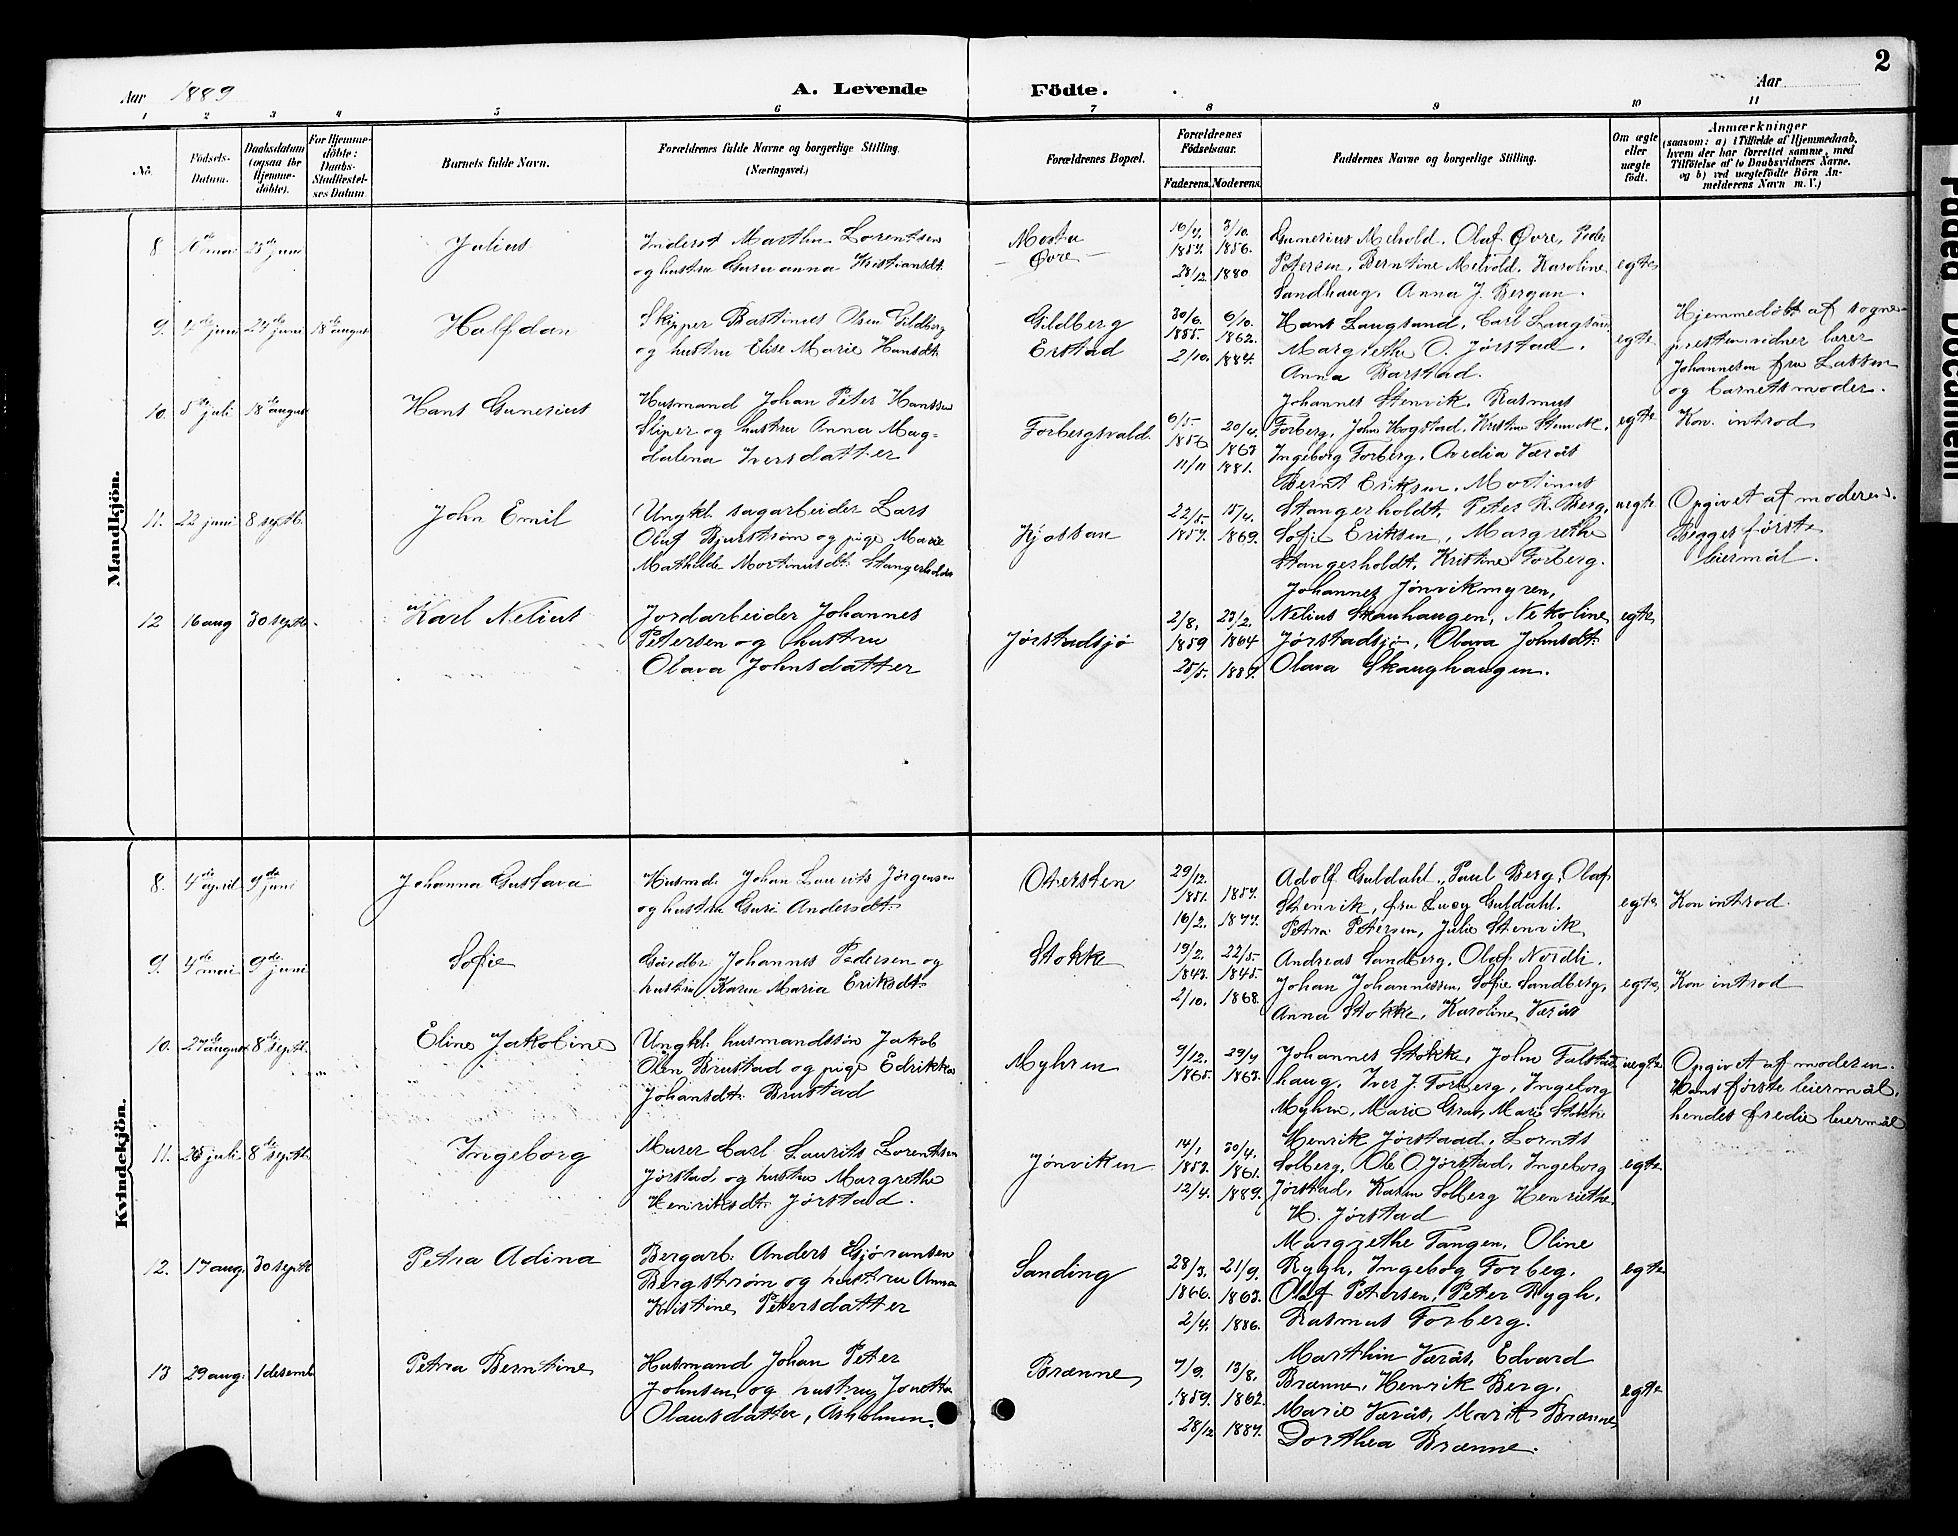 2
Aar 1889
A. Levende Födte.
Aar
1 2 3 4 5 6 7 8 9 10 11
No.
Födsels-Datum.
Daabsdatum (ogsaa for Hjemme-döbte).
For Hjemme-döbte: Daabs-Stadfæstel-ses Datum
Barnets fulde Navn.
Forældrenes fulde Navne og borgerlige Stilling. (Næringsvei.)
Forældrenes Bopæl.
Forældrenes Födselsaar.
Faderens. Moderens.
Faddernes Navne og borgerlige Stilling.
Om ægte eller uægte födt.
Anmærkninger
(saasom: a) i Tilfælde af Hjemmedaab, hvem der har forrettet samme, med Tilföielse af to Daabsvidners Navne. og b) ved uægtefödte Börn An-melderens Navn m. V.)
Mandkjön.
8 10de mai 23de juni Julius
Inderst Marthin Lorentsen
og hustru Gunuanna Kristiansdt.
Mosta
— Øvre —
1857. 1856.
28/12 1880
Gunerius Melvold, Olaf Øvre, Peder
Petersen, Berntine Melvold, Karoline
Sandhaug, Anna J. Bergan.
egte
9. 4de juni 24de juni 18de august Halfdan
Skipper Bastinus Olsen Gildberg
og hustru Elise Marie Hansdt.
Gildberg
Erstad
30/6. 6/10.
1855. 1862.
2/10. 1884.
Hans Langsand, Carl Langsand
Margrethe O. Jørstad,
Anna Barstad.
egte
Hjemmedøbt af sogne-
presten vidner lærer
Johannesen fru Lassen
og barnets moder.
10. 5de juli 18de august Hans Gunerius
Husmand Johan Peter Hanssen
Sliper og hustru Anna Mag-
dalena Iversdatter
Forbergsvald.
6/5. 20/4.
1856 1863
11/11 1881.
Johannes Stenvik, Rasmus
Forberg, John Hogstad, Kristine Stenvik,
Ingeborg Forberg, Ovedia Værås
egte
Kon. introd
11. 22 juni 8 septb. John Emil
Ungkl. sagarbeider Lars
Oluf Bjurstrøm og pige Marie
Mathilde Mortinusdt. Stangerholdt
Kjossan
22/5. 15/4.
1857. 1869.
Bernt Eriksen, Mortinus
Stangerholdt, Peter K. Berg,
Sofie Eriksen, Margrethe
Stangerholdt, Kristine Forberg.
uegte
Opgivet af moderen.
Begges første
leiermål.
12 16 aug 30 septb. Karl Nelius
Jordarbeider Johannes
Petersen og hustru
Olava Johnsdatter
Jørstadsjø
2/8. 23/2.
1859 1864
25/5. 1887.
Johannes Jønvikmyren,
Nelius Skauhaugen, Nikoline
Jørstadsjø, Olava Johnsdt.
Olava Skaughaugen.
egte
Kvindekjön.
8. 4de april 9de juni Johanna Gustava
Husmd. Johan Laurits Jørgensen
og hustru Guri Andersdt.
Otersten
29/12.
1851. 1857.
16/2. 1877.
Adolf Guldahl, Paul Berg, Olaf
Stenvik, fru Lucy Guldahl.
Petra Petersen, Julie Stenvik
egte
Kon introd.
9. 4de mai 9de juni Sofie
Gårdbr. Johannes Pedersen og
hustru Karen Maria Eriksdt.
Stokke
19/2. 22/5.
1843. 1845.
2/10. 1868.
Andreas Sandberg, Olaf Nordli.
Johan Johannessen, Sofie Sandberg,
Anna Stokke, Karoline Værås
egte
Kon introd
10. 27de august 8de septb. Eline Jakobine
Ungkl. husmandssøn Jakob
Olsen Brustad og pige Edrikka
Johansdt. Brustad
Myhren
9/12. 29/7
1865. 1863.
Johannes Stokk, John Falstad-
haug, Iver J. Forberg, Ingeborg
Myhrn, Marie Grav, Marie Stokk
uegte
Opgivet af moderen.
Hans første leiermål,
hendes tredie leiermål
11. 25 juli 8de septb. Ingeborg
Murer Carl Laurits Lorentsen
Jørstad og hustru Margrethe
Henriksdt. Jørstad.
Jønviken
14/1 30/4.
1853. 1861.
12/4. 1889.
Henrik Jørstad, Lornts
Solberg, Ole O. Jørstad, Ingeborg
Jørstad, Karen Solberg Henriette
H. Jørstad
egte
12. 17 aug. 30 septb Petra Adina
Bergarb. Anders Gjøransen
Bergstrøm og hustru Anna
Kristine Petersdatter
Sanding
28/3. 21/9.
1866. 1863.
2/4. 1886.
Margrethe Tangen, Oline
Rygh, Ingebog Forbeg,
Olaf Petersen, Peter Rygh,
Rasmus Forberg.
egte
13 29 aug. 1 desemb Petra Berntine
Husmand Johan Peter
Johnsen og hustru Jonetta
Olausdatter, Asholmen.
Brænne
7/9. 13/8.
1859. 1862.
28/12 1887.
Marthin Værås, Edvard
Brænne, Henrik Berg,
Marie Værås, Marit Brænne
Dorthea Brænne.
egte
Faded Document